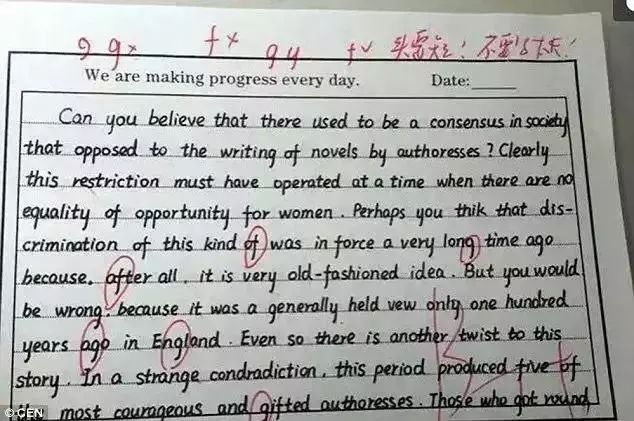 g g× f× g y f✓ 头要短! 不要勾太长!
We are making progress every day. Date:
Can you believe that there used to be a consensus in society
that opposed to the writing of novels by authoresses? Clearly
this restriction must have operated at a time when there are no
equality of opportunity for women. Perhaps you thik that dis-
crimination of this kind of was in force a very long time ago
because, after all, it is very old-fashioned idea. But you would
be wrong: because it was a generally held vew only one hundred
years ago in England. Even so there is another twist to this
story. In a strange condradiction, this period produced five of
the most courageous and gifted authoresses. Those who got round
© CEN